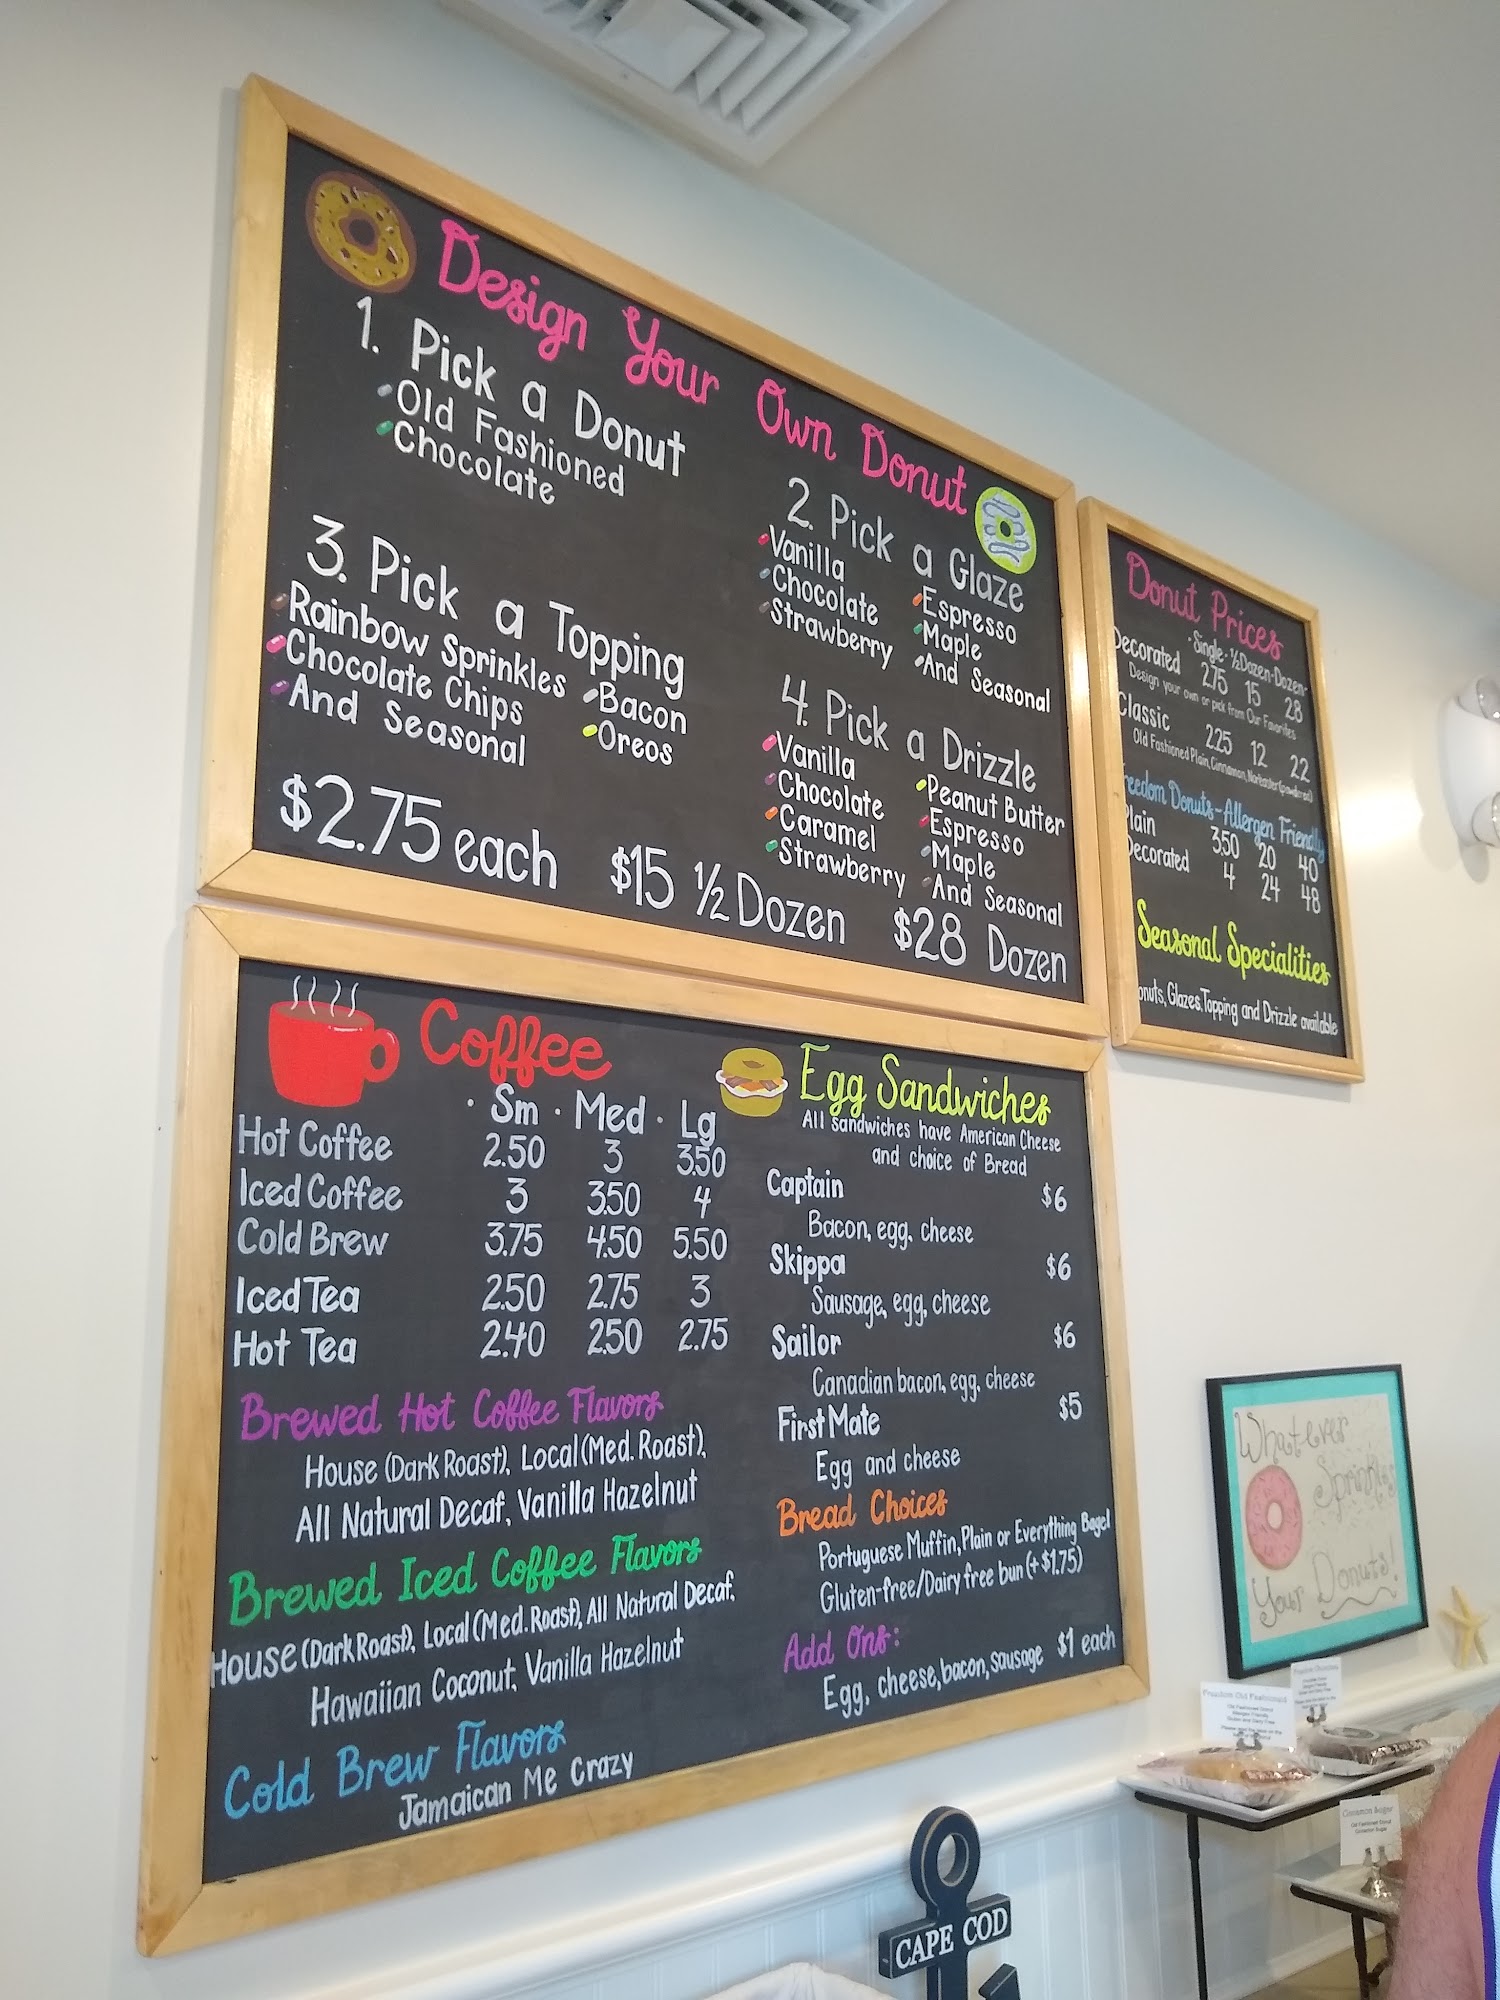 Design Your Own Donut
1. Pick a Donut
Old Fashioned
Chocolate
2. Pick a Glaze
Vanilla
Chocolate
Strawberry
Espresso
Maple
And Seasonal
3. Pick a Topping
Rainbow Sprinkles
Chocolate Chips
And Seasonal
Bacon
Oreos
4. Pick a Drizzle
Vanilla
Chocolate
Caramel
Strawberry
Peanut Butter
Espresso
Maple
And Seasonal
$2.75 each $15 ½ Dozen $28 Dozen
Donut Prices
·Single·½Dozen·Dozen·
Decorated 2.75 15 28
Design your own or pick from Our Favorites
Classic 2.25 12 22
Old Fashioned Plain, Cinnamon, Nor'easter (powdered)
Freedom Donuts-Allergen Friendly
Plain 3.50 20 40
Decorated 4 24 48
Seasonal Specialities
Donuts, Glazes, Topping and Drizzle available
Coffee
· Sm · Med · Lg
Hot Coffee 2.50 3 3.50
Iced Coffee 3 3.50 4
Cold Brew 3.75 4.50 5.50
Iced Tea 2.50 2.75 3
Hot Tea 2.40 2.50 2.75
Brewed Hot Coffee Flavors
House (Dark Roast), Local (Med. Roast),
All Natural Decaf, Vanilla Hazelnut
Brewed Iced Coffee Flavors
House (Dark Roast), Local (Med. Roast), All Natural Decaf,
Hawaiian Coconut, Vanilla Hazelnut
Cold Brew Flavors
Jamaican Me Crazy
Egg Sandwiches
All sandwiches have American Cheese
and choice of Bread
Captain $6
Bacon, egg, cheese
Skippa $6
Sausage, egg, cheese
Sailor $6
Canadian bacon, egg, cheese
First Mate $5
Egg and cheese
Bread Choices
Portuguese Muffin, Plain or Everything Bagel
Gluten-free/Dairy free bun (+$1.75)
Add Ons:
Egg, cheese, bacon, sausage $1 each
Whatever
Sprinkles
Your Donuts!
Freedom Old Fashioned
Old Fashioned Donut
Allergen Friendly
Gluten and Dairy Free
Cinnamon Sugar
Old Fashioned Donut
Cinnamon Sugar
CAPE COD